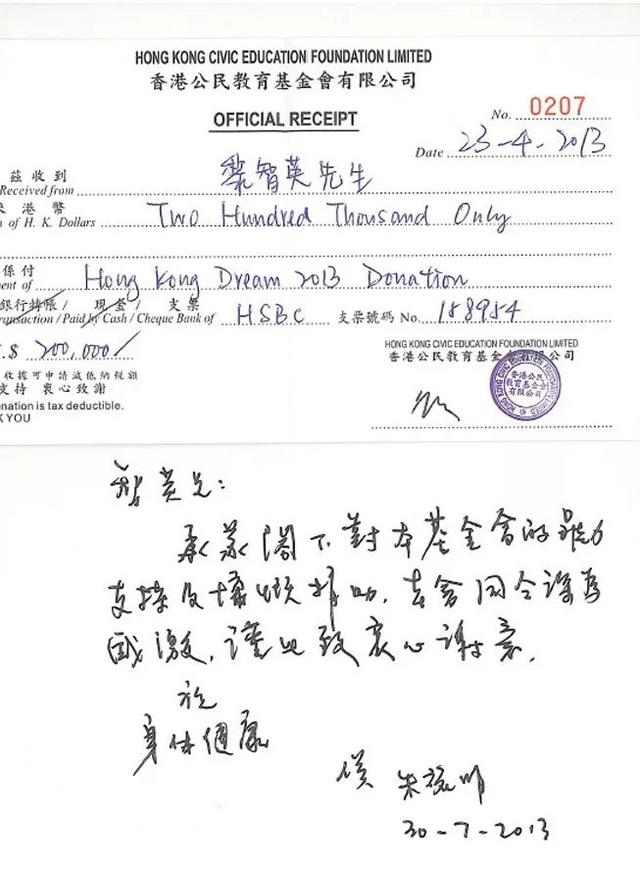 HONG KONG CIVIC EDUCATION FOUNDATION LIMITED
香港公民教育基金會有限公司
OFFICIAL RECEIPT
No. 0207
Date 23-4-2013
茲收到
Received from 黎智英先生
港幣
n of H. K. Dollars Two Hundred Thousand Only
係付
ment of Hong Kong Dream 2013 Donation
銀行轉帳 / 現金 / 支票
ransaction / Paid by Cash / Cheque Bank of HSBC 支票號碼 No. 188954
.$ 200,000/
HONG KONG CIVIC EDUCATION FOUNDATION LIMITED
香港公民教育基金會有限公司
收據可申請減低納稅額
支持 衷心致謝
onation is tax deductible.
K YOU
香港公民
教育基金會
有限公司
智英兄:
承蒙閣下對本基金會的鼎力
支持及慷慨捐助,本會同仝深為
感激,謹此致衷心謝意。
祝
身体健康
朱耀明
30-7-2013